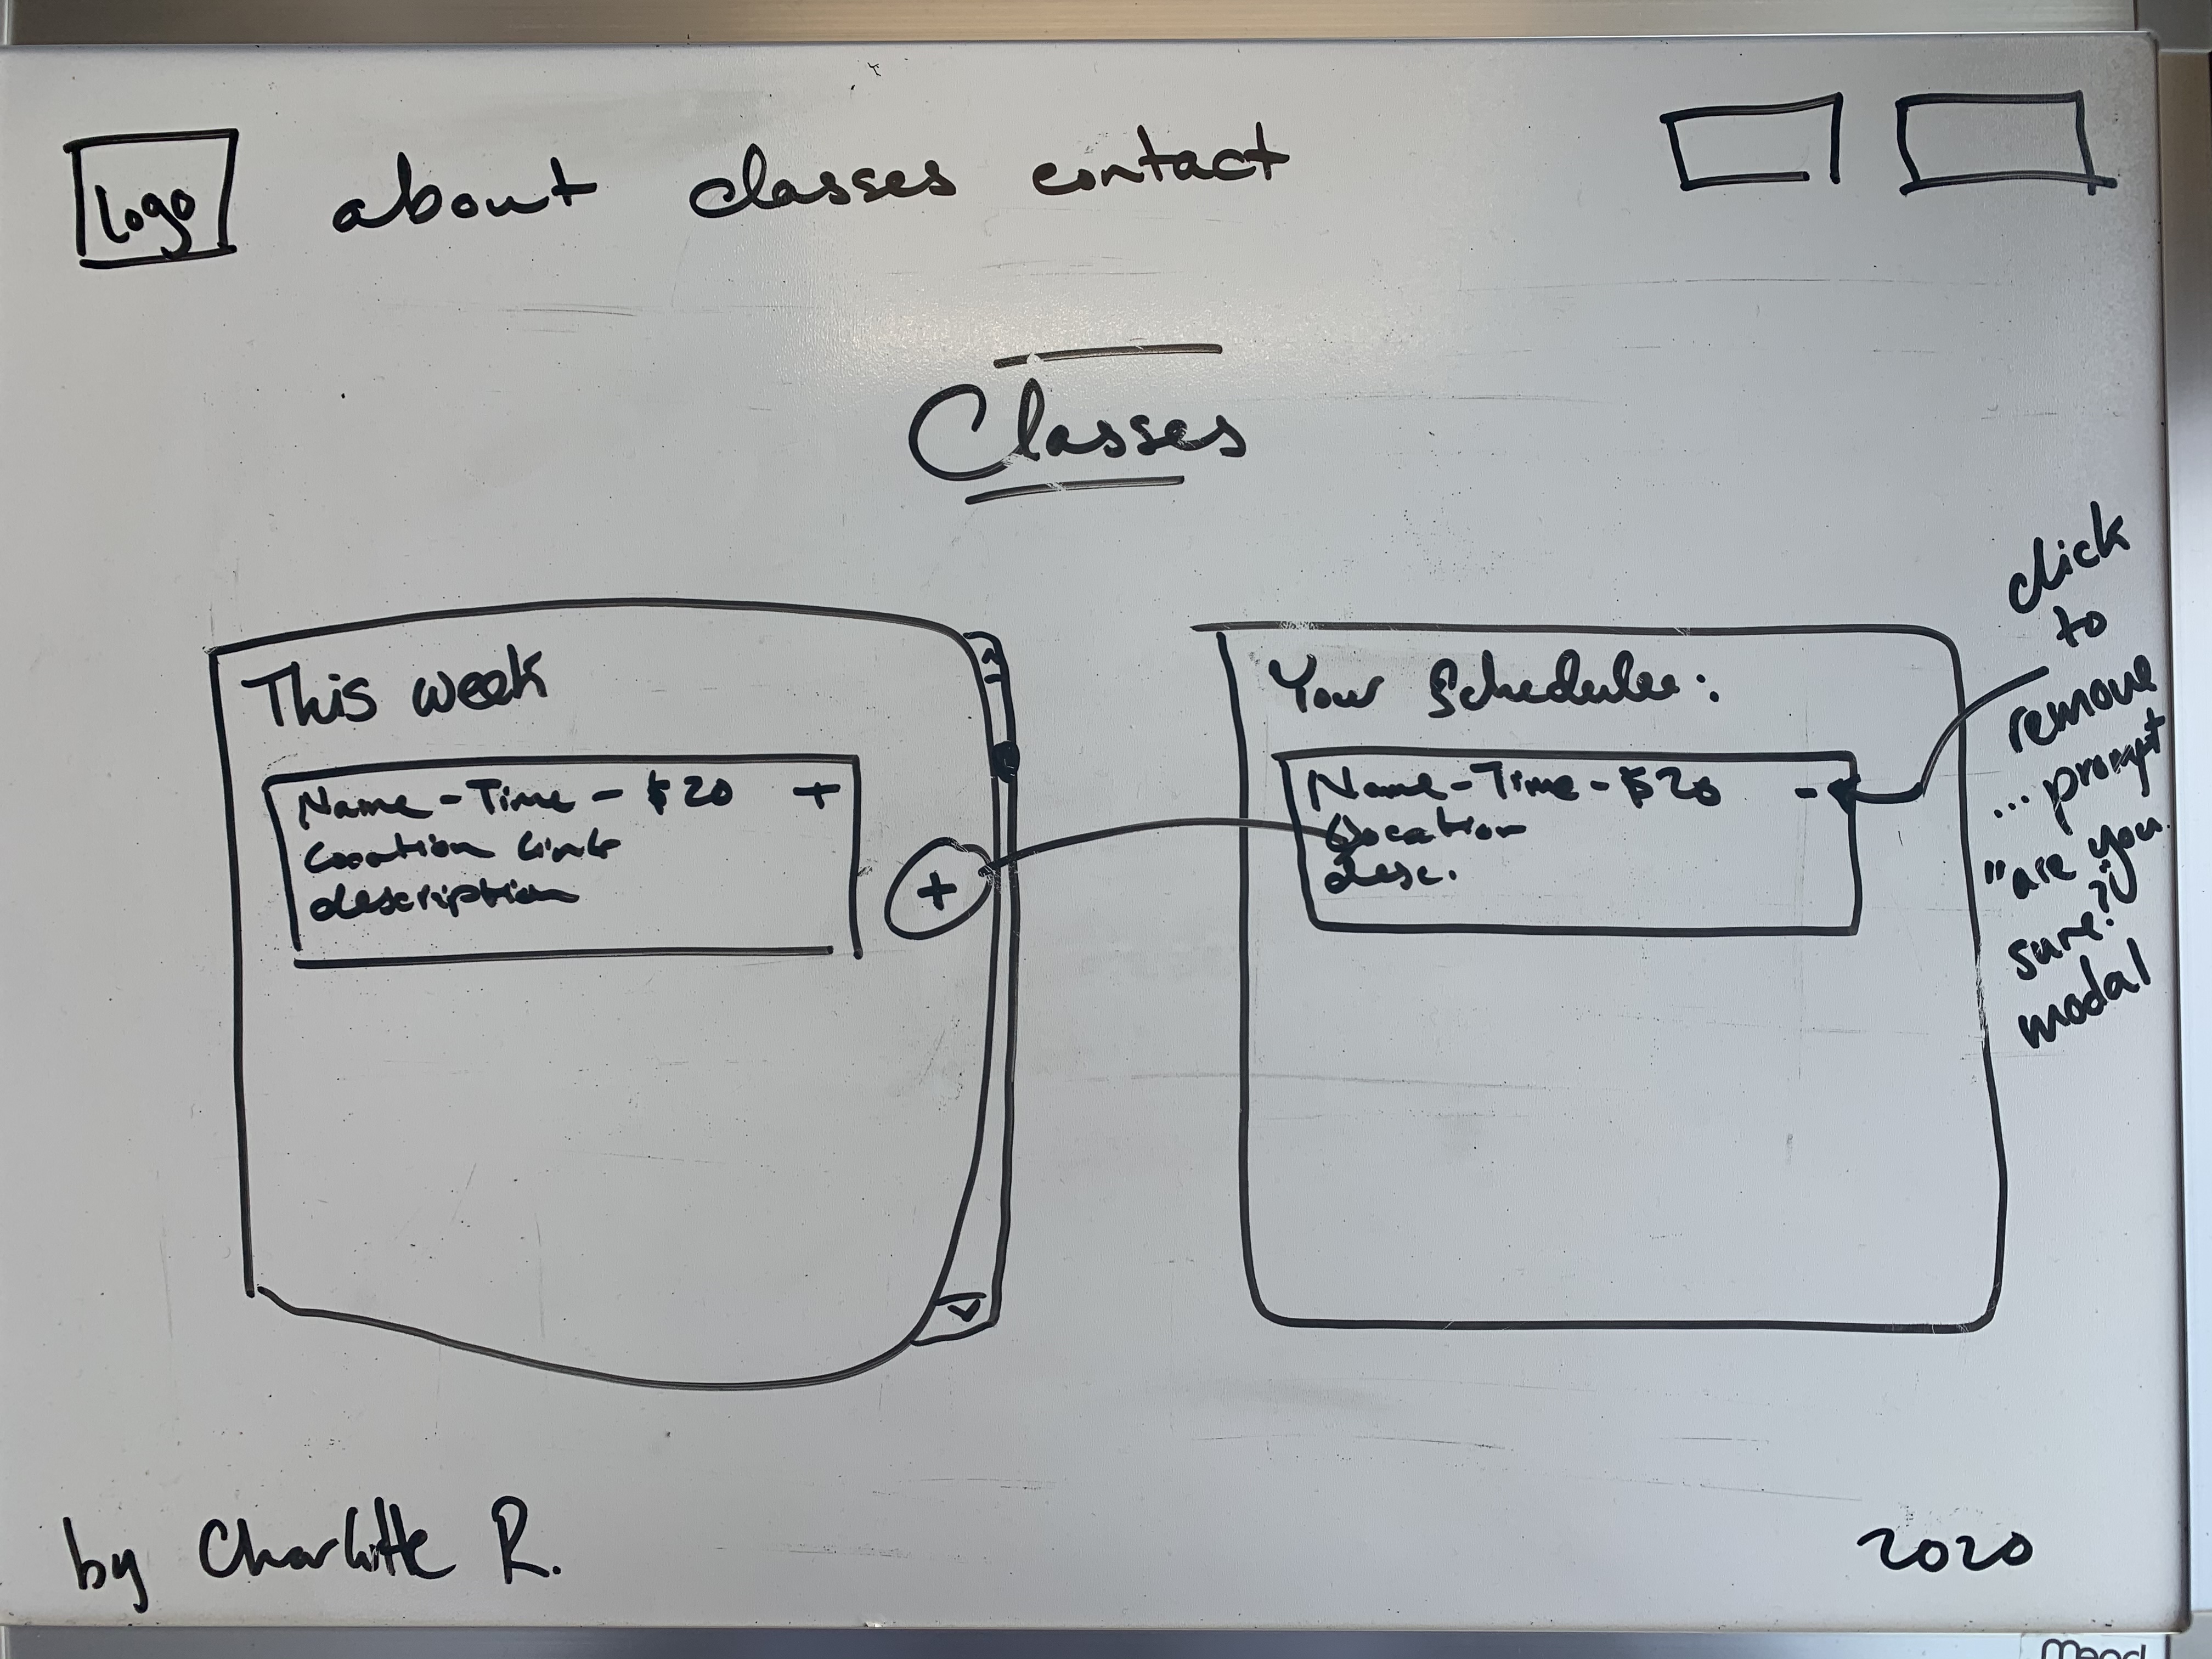 logo
about classes contact
Classes
This week
Name - Time - $20 +
Location link
description
+
Your Schedule:
Name - Time - $20 -
Location
desc.
click
to
remove
... prompt
"are you
sure?"
modal
by Charlotte R.
2020